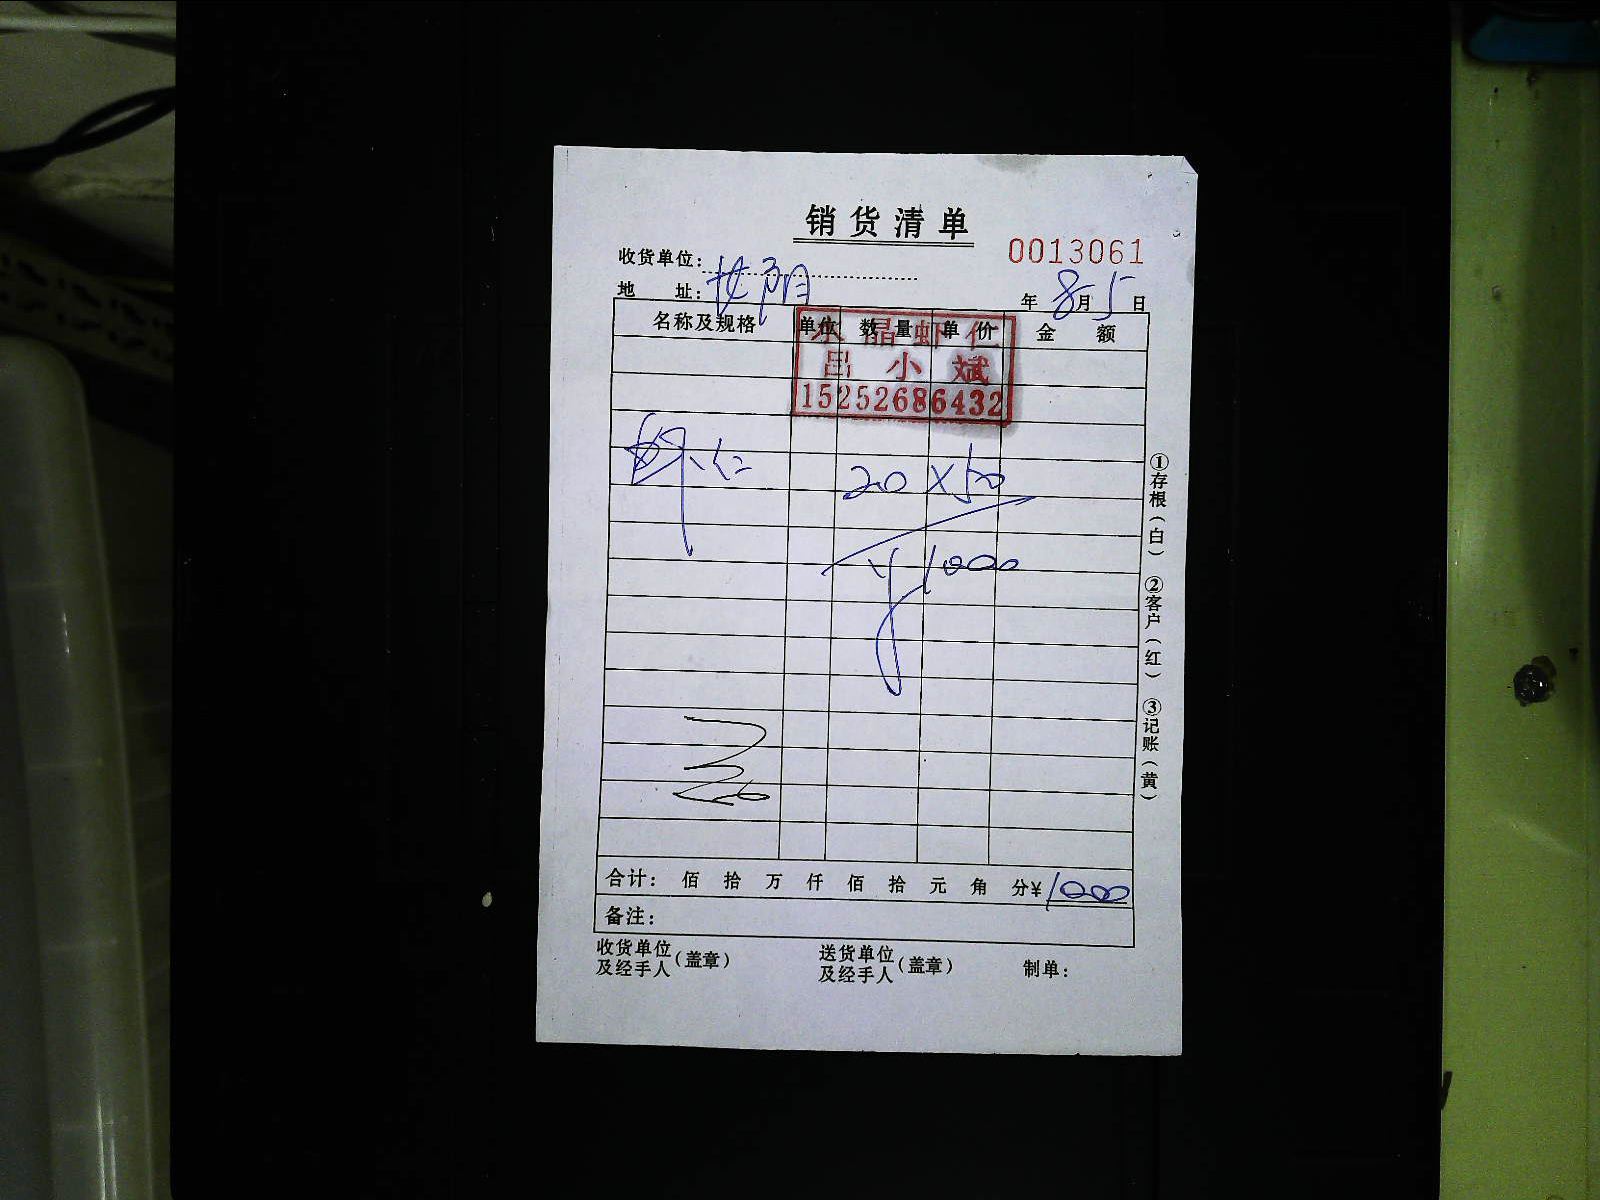 销货清单
0013061
收货单位：
地 址： 年 8月5日
名称及规格 单位 数量 单价 金额
水晶虾仁
吕小斌
15252686432
虾仁 20×50
¥1000
合计： 佰 拾 万 仟 佰 拾 元 角 分¥1000
备注：
收货单位及经手人（盖章） 送货单位及经手人（盖章） 制单：
①存根（白） ②客户（红） ③记账（黄）